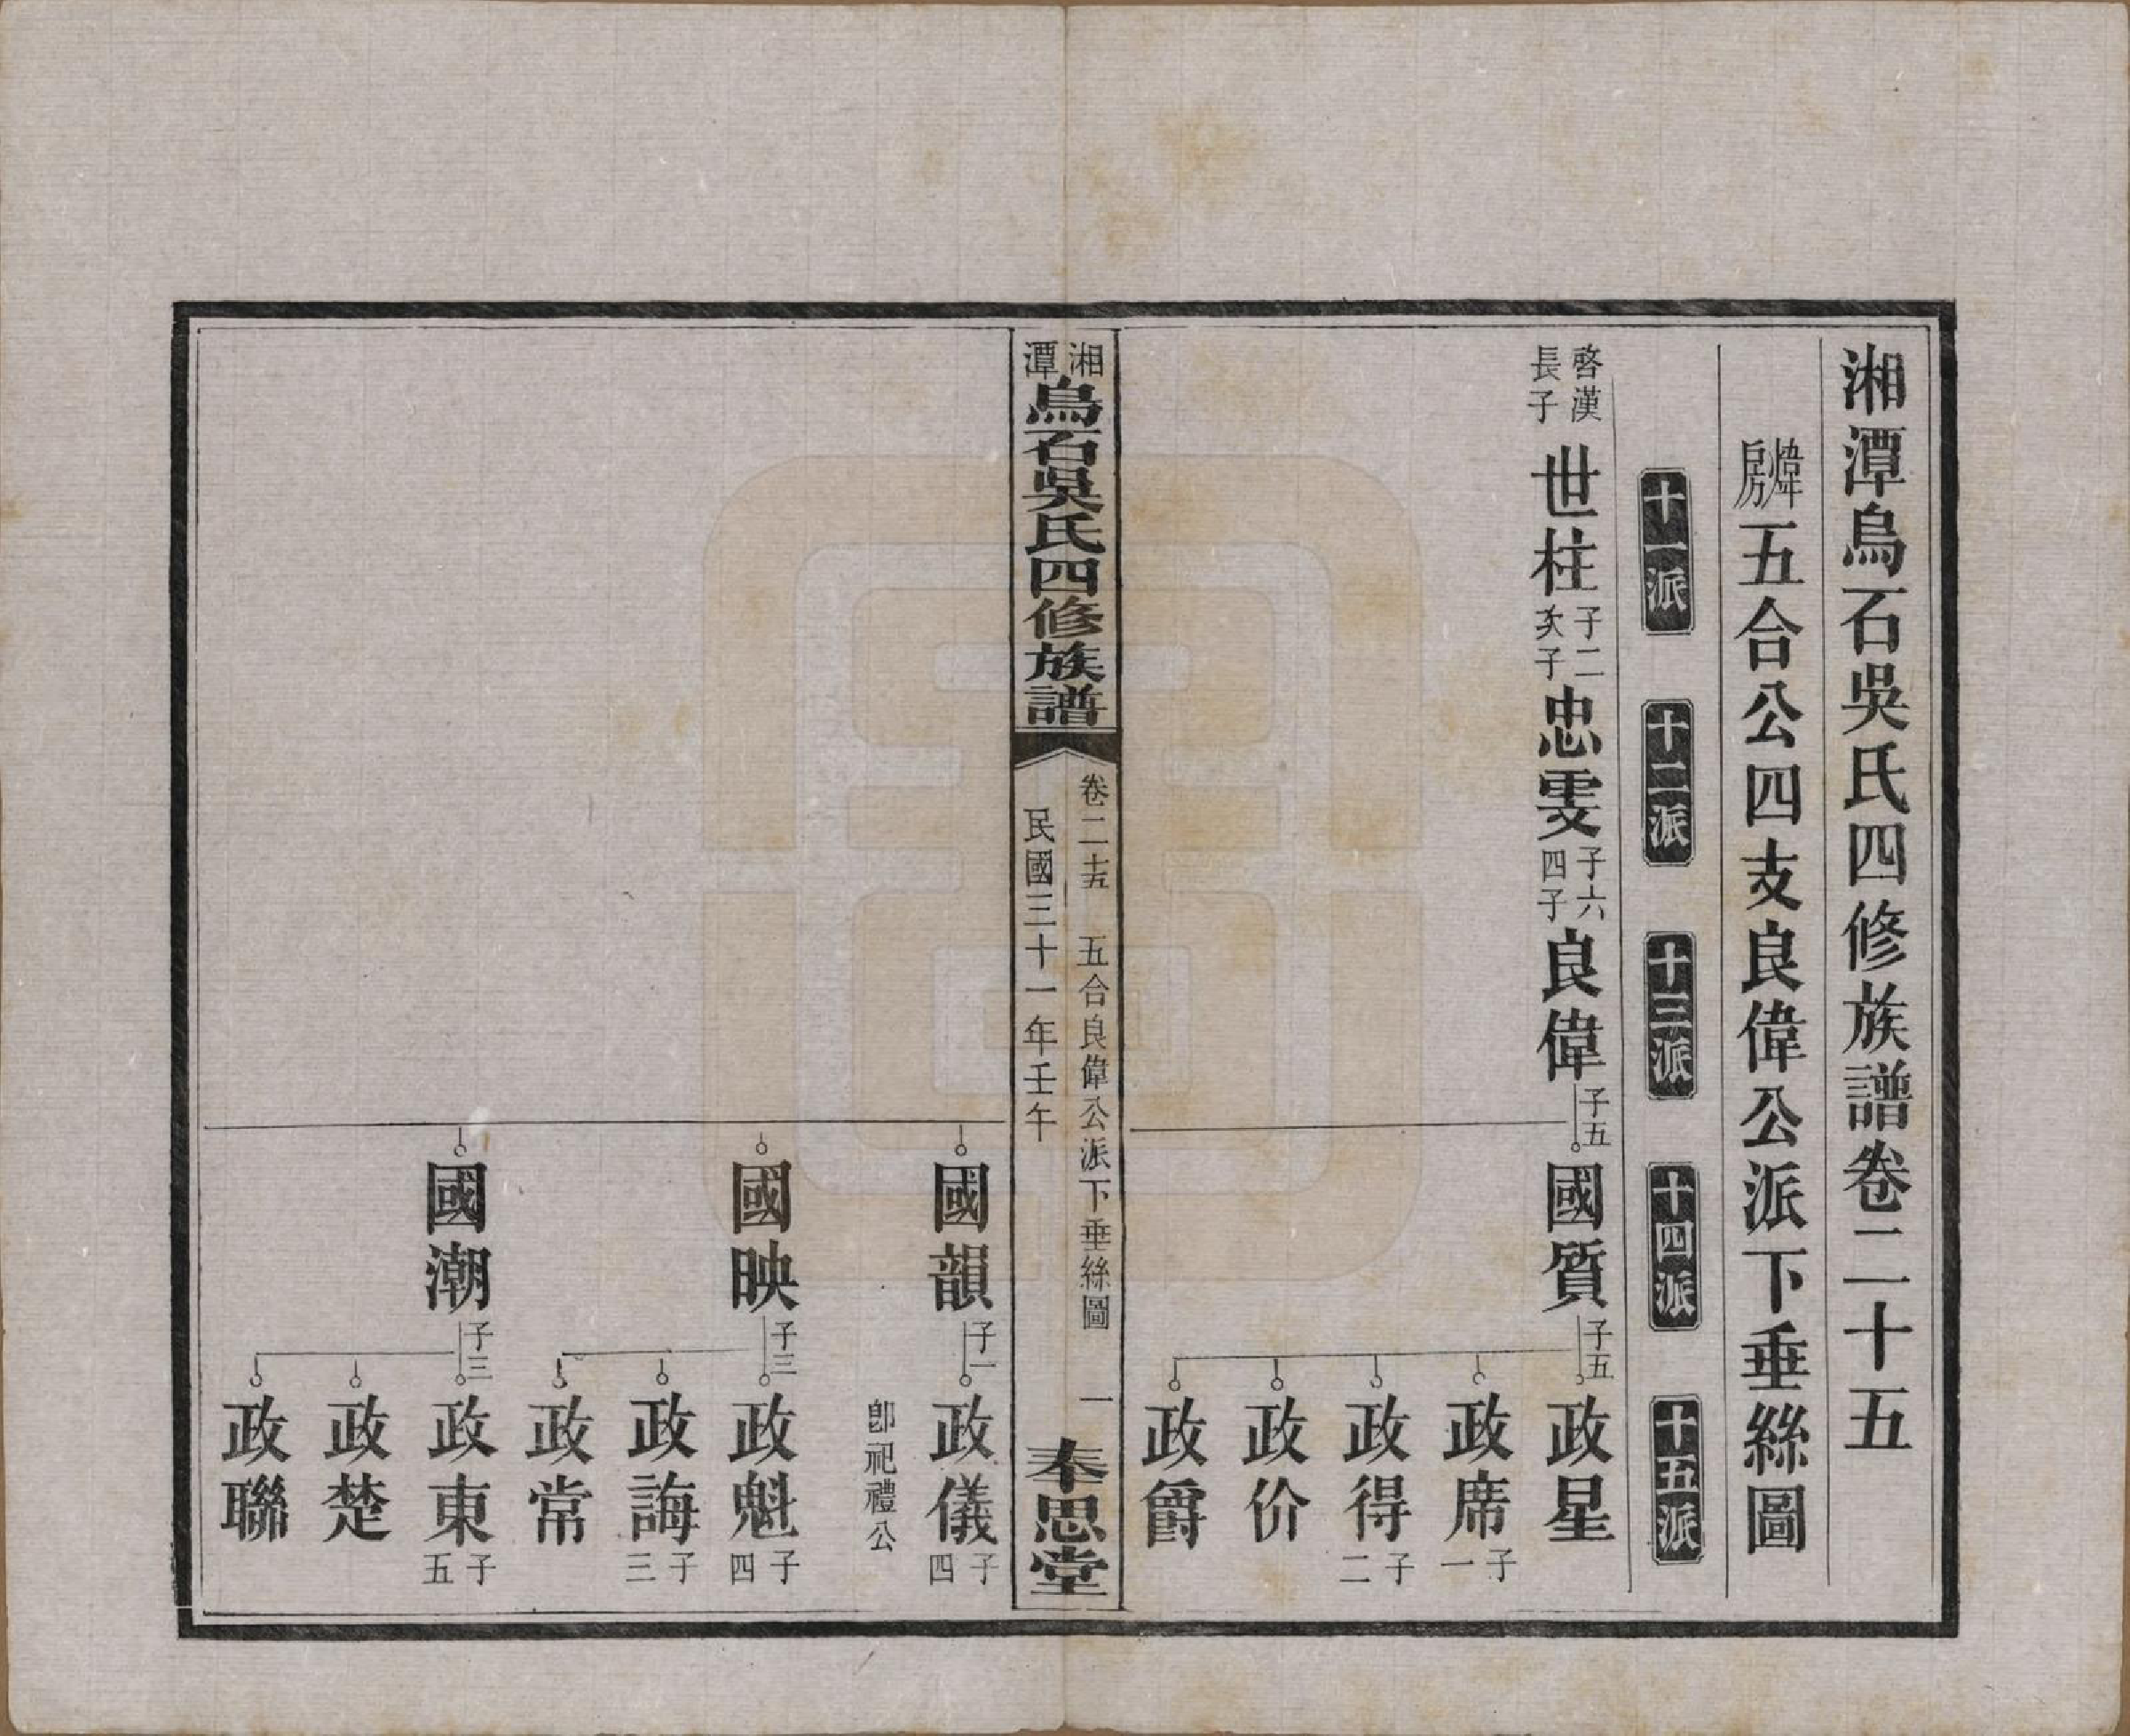 湘潭烏石吳氏四修族譜卷二十五
煒房五合公四支良偉公派下垂絲圖
十一派
十二派
十三派
十四派
十五派
啓漢長子
世柱
子二
次子
忠雯
子六
四子
良偉
子五
國質
子五
政星
政席
子一
政得
子二
政价
政爵
湘潭烏石吳氏四修族譜
卷二十五 五合良偉公派下垂絲圖 一
民國三十一年壬午
奉思堂
國韻
子一
政儀
子四
卽祀禮公
國映
子三
政魁
子四
政誨
子三
政常
國潮
子三
政東
子五
政楚
政聯